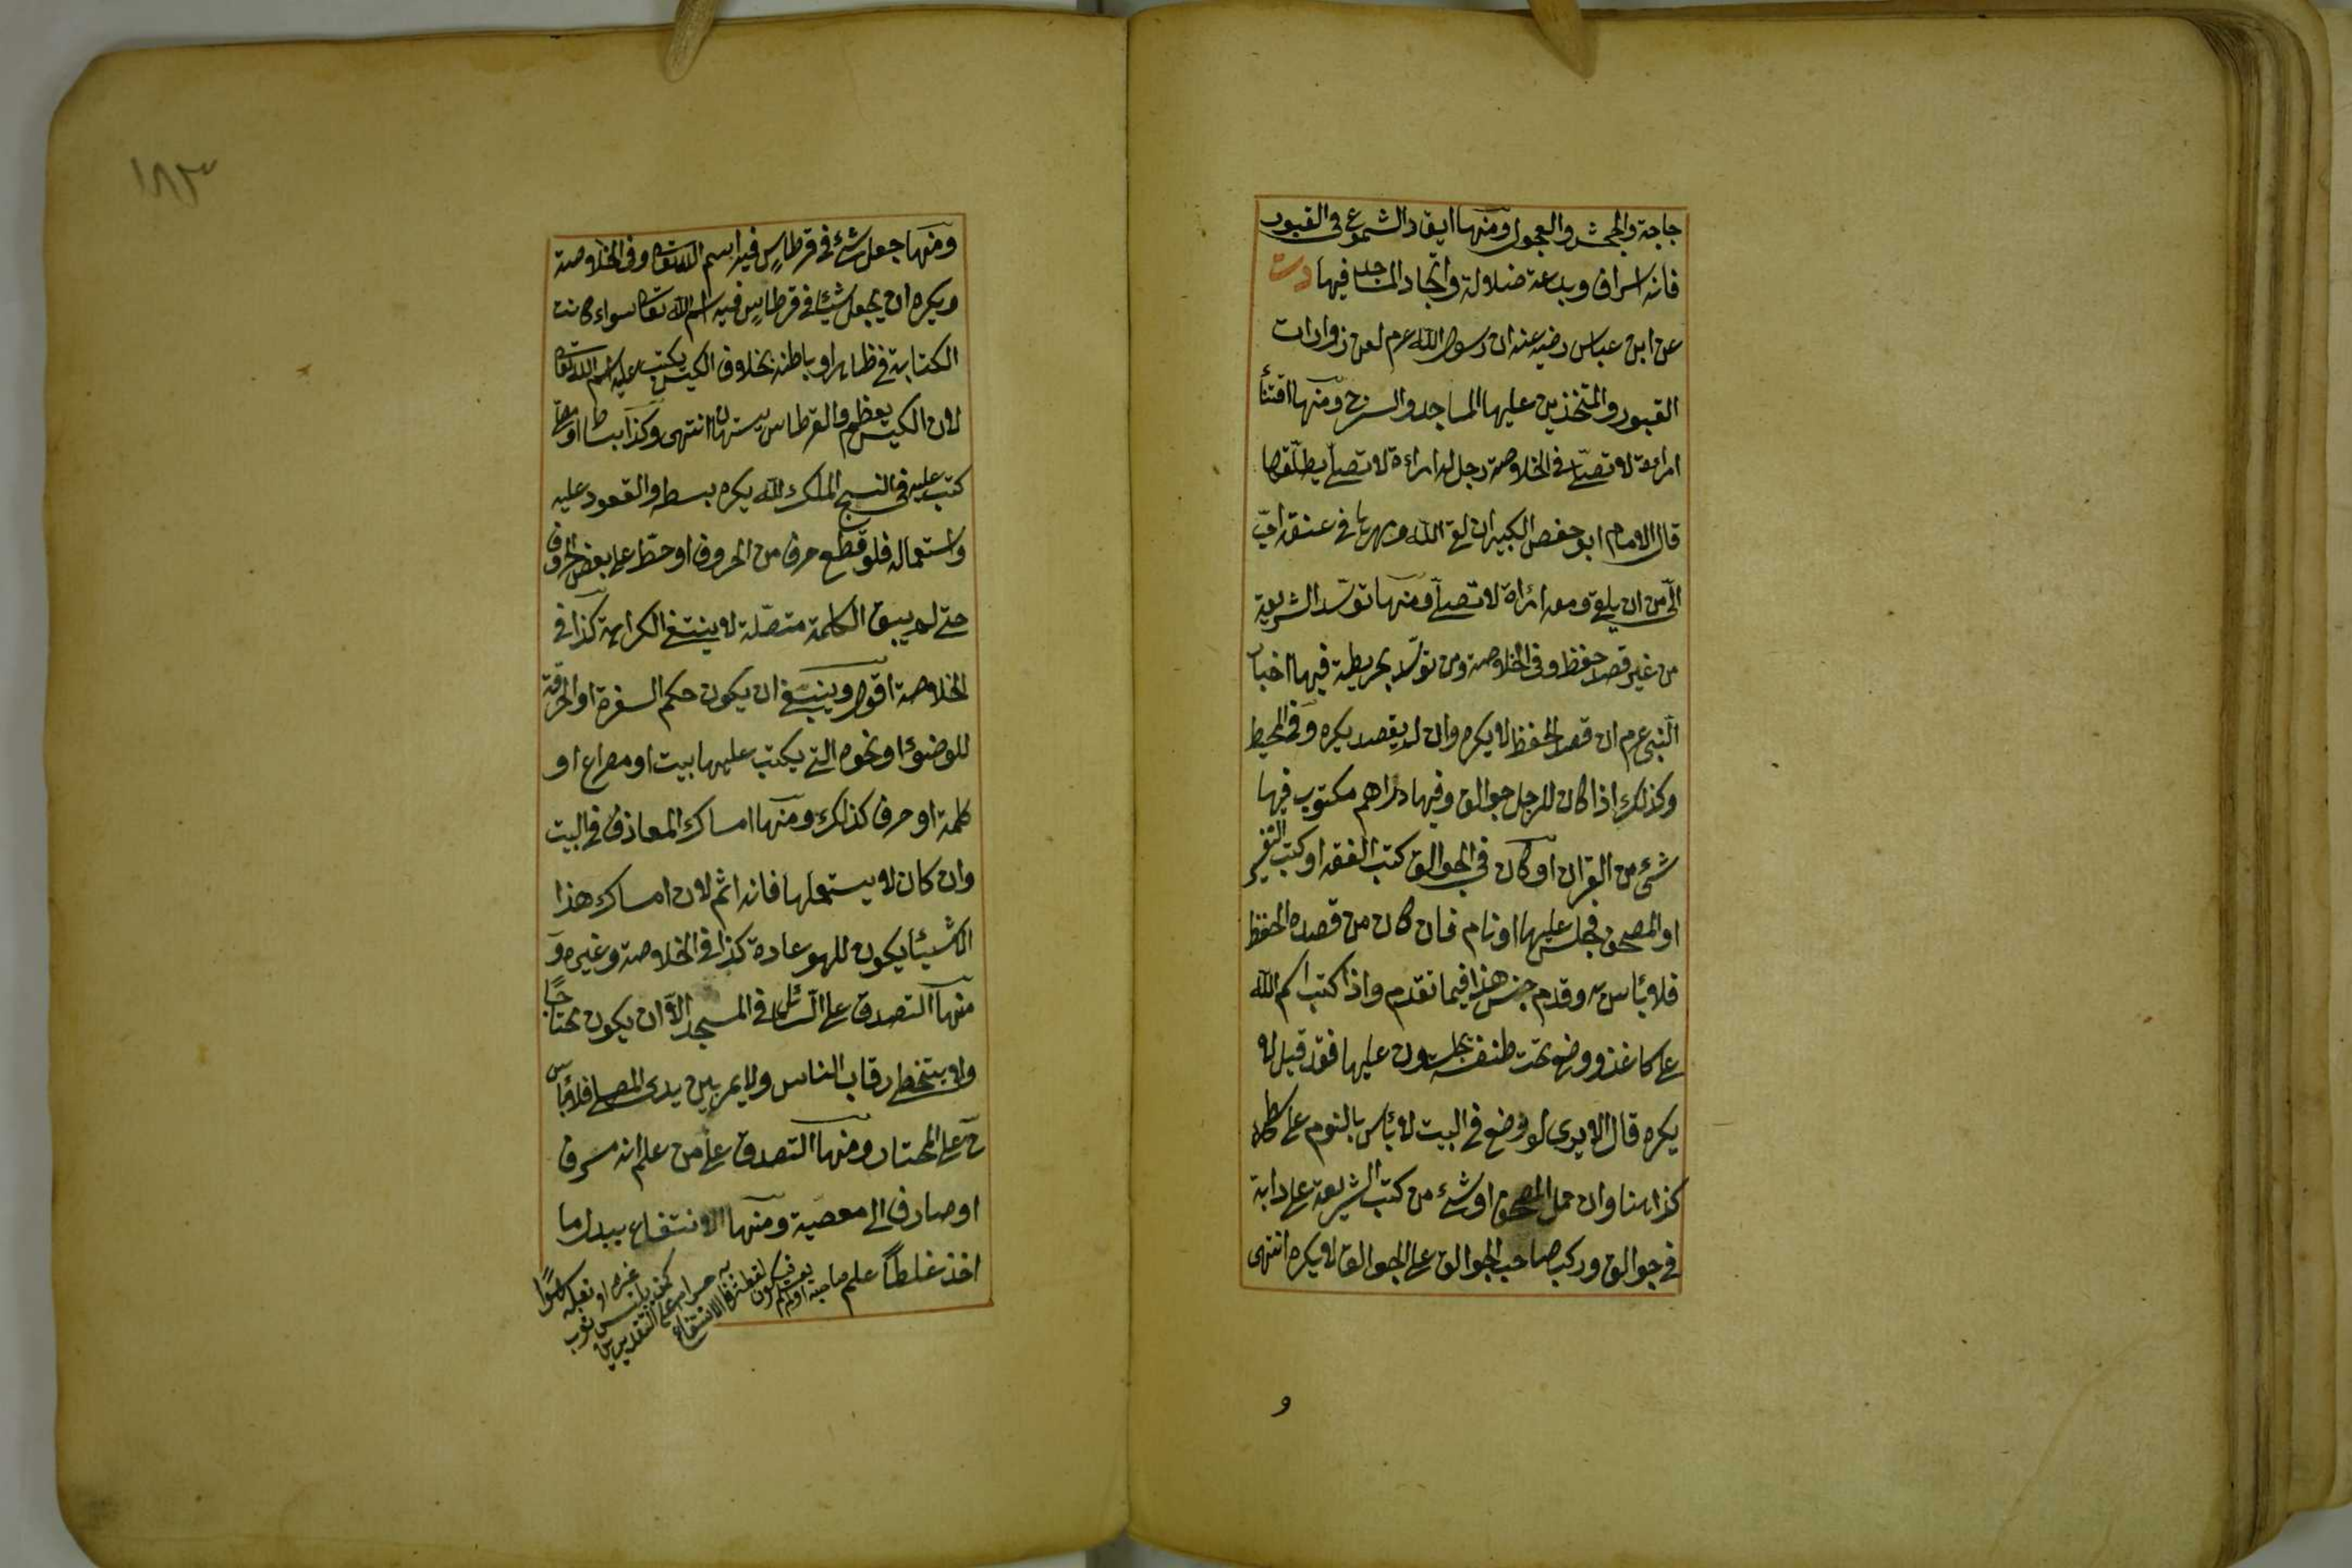 حاجة والجحش والعجول ومنها ايقاد الشموع في القبور
فانه اسراف وبدعة ضلالة واتخاذ المساجد فيها دت
عن ابن عباس رضيه عنه ان رسول الله عرم لعن زوارات
القبور والمتخذين عليها المساجد والسرج ومنها اقتنأ
امراءة لا تصلى في الخلاصة رجل له امراءة لا تصلى يطلقها
قال الامام ابو حفص الكبير ان لقى الله ومهرها في عنقه احب
الى من ان يلقى ومعه امراة لا تصلى ومنها توسد الشريعة
من غير قصد حفظ وفي الخلاصة ومن توسد بخريطة فيها اخبار
النبى عرم ان قصد الحفظ لا يكره وان لم يقصد يكره وفي المحيط
وكذلك اذا كان للرجل جوالق وفيها دراهم مكتوب فيها
شئ من القران او كان في الجوالق كتب الفقه او كتب التفسير
او المصحف فجلس عليها او نام فان كان من قصده الحفظ
فلا بئاس به وقدم جنس هذا فيما تقدم واذا كتب اسم الله
على كاغذ ووضع تحت طنفسة يجلسون عليها فقد قيل لا
يكره قال الا يرى لو وضع في البيت لا بئاس بالنوم على سطحه
كذا هنا وان حمل المصحف او شئ من كتب الشريعة على دابة
في جوالق وركب صاحب الجوالق على الجوالق لا يكره انتهى
و
١٨٣
ومنها جعل شئ في قرطاس فيه اسم الله تعا وفي الخلاصة
ويكره ان يجعل شيئا في قرطاس فيه اسم الله تعا سواء كانت
الكتابة في ظاهره او باطنه بخلاف الكيس يكتب عليه اسم الله تعا
لان الكيس يعظم والقرطاس يستهان انتهى وكذا بساط او مصلى
كتب عليه في النسج الملك لله يكره بسطه والقعود عليه
واستعماله فلو قطع حرف من الحروف او حط على بعض الحروف
حتى لم يبق الكلمة متصلة لا ينتفى الكراهة كذا في
الخلاصة اقول وينبغى ان يكون حكم السفرة او الخرقة
للوضوئ او نحوه التى يكتب عليها بيت او مصراع او
كلمة او حرف كذلك ومنها امساك المعازف في البيت
وان كان لا يستعملها فانه اثم لان امساك هذا
الاشيئا يكون للهو عادة كذا في الخلاصة وغيره و
منها التصدق على السائل في المسجد الا ان يكون محتاجا
ولا يتخطى رقاب الناس ولا يمر بين يدى المصلى فلا بئاس
ح على المختار ومنها التصدق على من علم انه مسرف
او صارف الى معصية ومنها الانتفاع ببدل ما
اخذ غلطا علم صاحبه او لم يعلم فيكون لقطة فالانتفاع به حرام على التقديرين كمن يلبس ثوب غيره او نعله سهوا